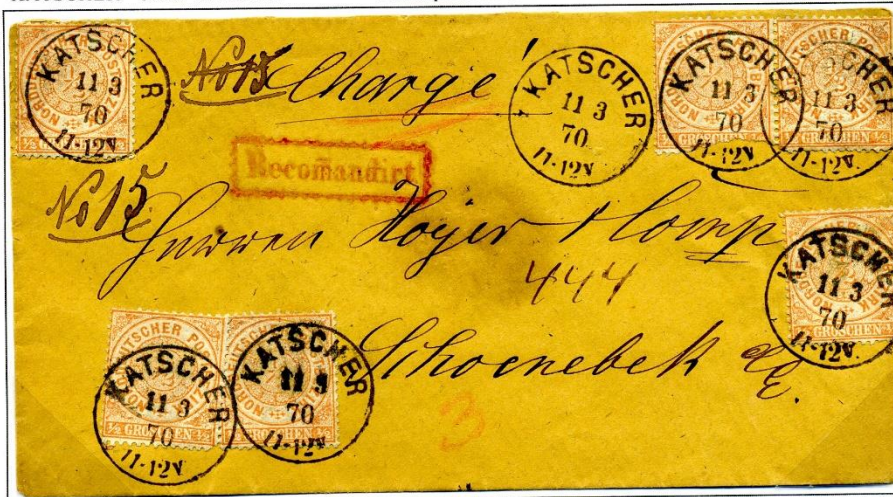 KATSCHER
11 3
70
11-12V.
No 15 Chargé
KATSCHER
11 3
70.
11-12V.
KATSCHER
11 3
70
11-12V.
KATSCHER
11 3
70
11-12V.
Recomandirt
No 15.
Herren Hoyer & Comp
444
KATSCHER
11 3
70
11-12V.
1/2 GROSCHEN 1/2
Schoenebek
KATSCHER
11 3
70
11-12V.
KATSCHER
11 3
70
11-12V.
1/2 GROSCHEN 1/2
GROSCHEN 1/2
3